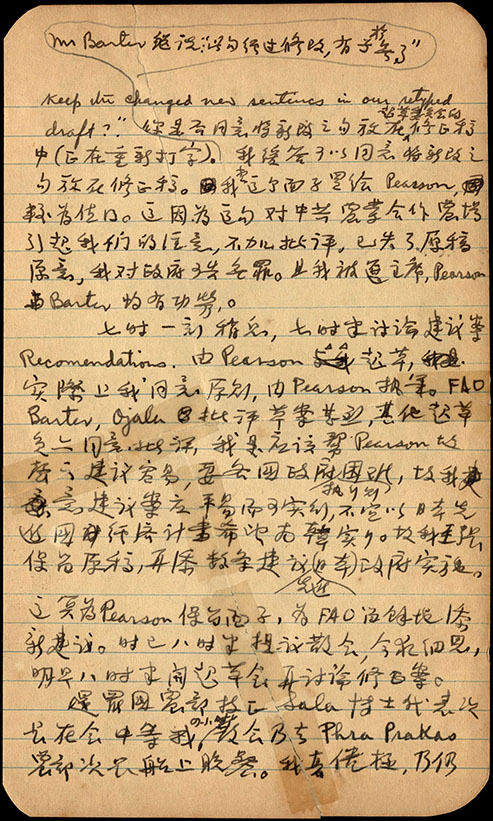 Mr Barter 继说:“此句经过修改,有
keep the changed new sentences in our retyped
draft?”你是否同意将新改之句放在修正稿
中(正在重新打字)。我后答可以同意将新改之
句放在修正稿。我这个面子是给 Pearson,
较为值日。这因为这句对中共农业合作农场
引起我们的注意,不加批评,已失了原稿
原意,我对政府可告无罪。且我被这主席, Pearson
Barter 均有功劳。
七时一刻稍息,七时半讨论建议案
Recomendations. 由 Pearson 起草,
实际上我同意原则,由 Pearson 执笔。FAO
Barter, Ojala 批评草案甚烈,其他起草
员亦同意批评,我是应该帮 Pearson 故
建议容易,要各国政府困难,故我
意建议案应平易而可实行,不宜以日本先
进国经济计画希望为实行。故我主张
保留原稿,再添数条建议(日本)政府实施。
这算为 Pearson 保留面子,为 FAO 留余地添
新建议。时已八时半提议散会,今夜细思,
明早八时半开起草会再讨论修正案。
暹罗国农部技正 Jala 博士代表次
长在会中等我,散会即去 Phra Prakas
农部次长船上晚餐。我真倦极,乃仍